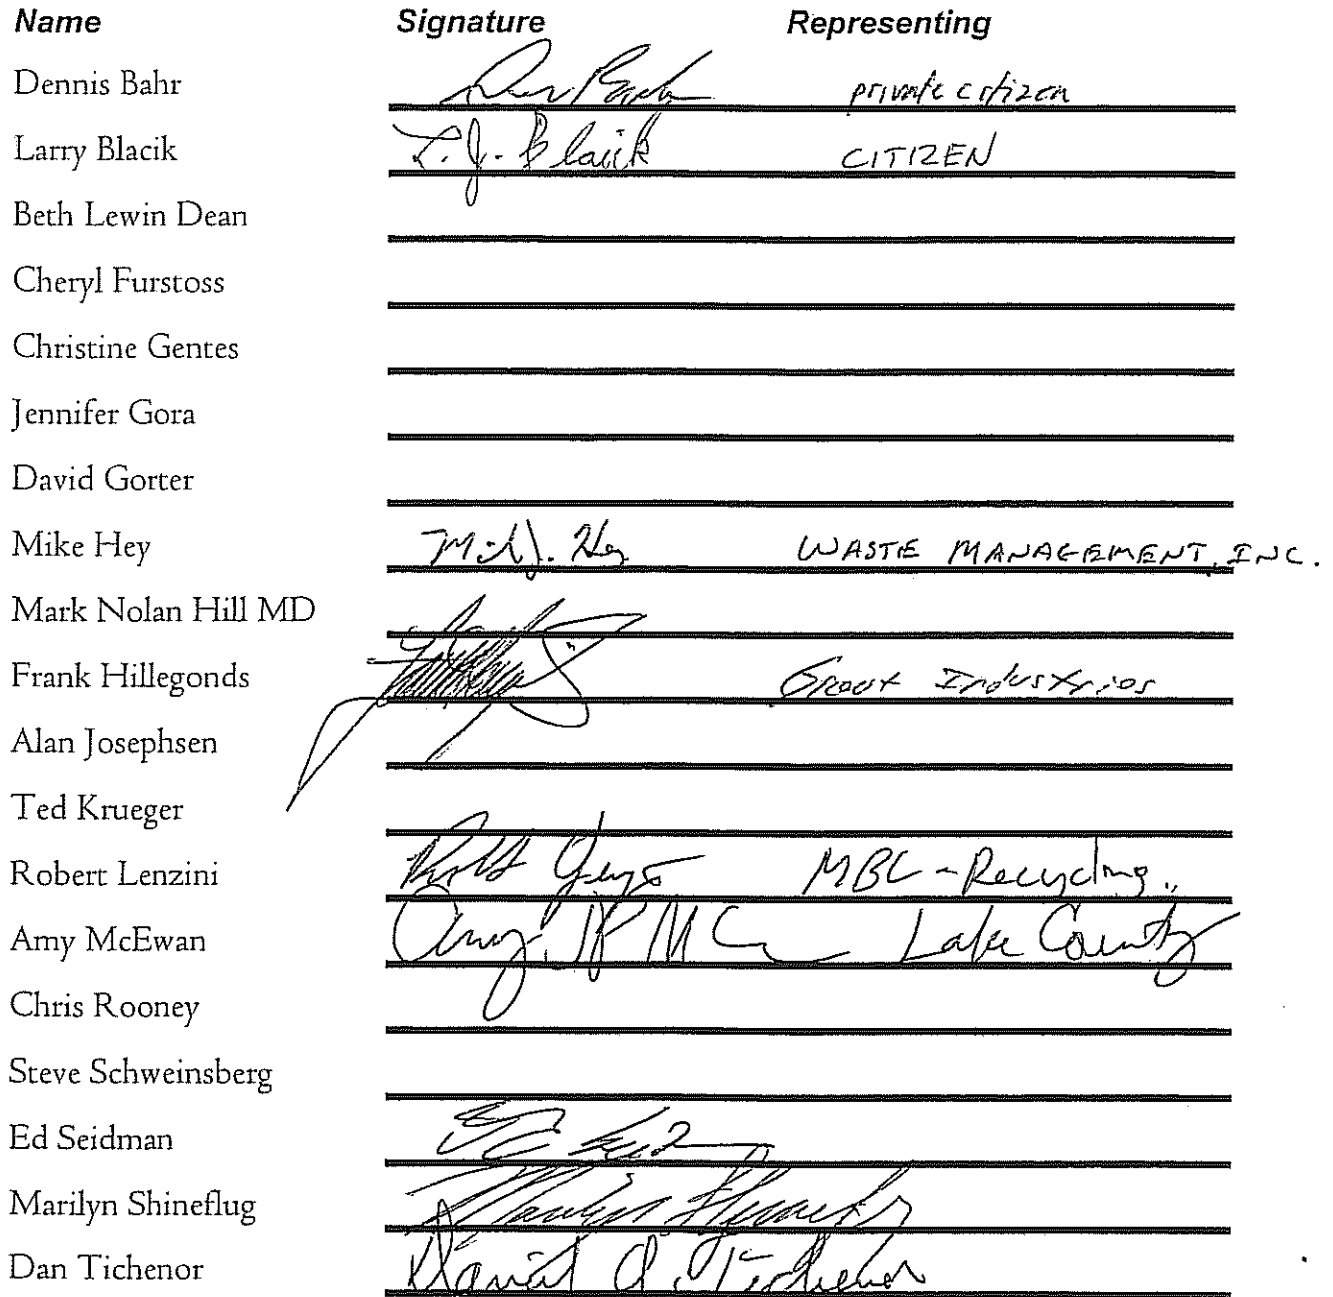 Name Signature Representing
Dennis Bahr private citizen
Larry Blacik L. J. Blacik CITIZEN
Beth Lewin Dean
Cheryl Furstoss
Christine Gentes
Jennifer Gora
David Gorter
Mike Hey WASTE MANAGEMENT, INC.
Mark Nolan Hill MD
Frank Hillegonds Groot Industries
Alan Josephsen
Ted Krueger
Robert Lenzini MBL - Recycling
Amy McEwan Amy Lake County
Chris Rooney
Steve Schweinsberg
Ed Seidman
Marilyn Shineflug Marilyn
Dan Tichenor Daniel A. Tichenor